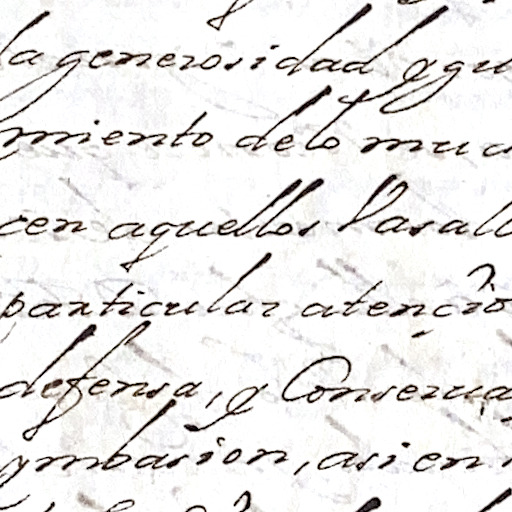 la generosidad, y gu
miento delo muc
cen aquellos Vasall
particular atençiõ
defensa, y Conserua
ymbasion, asi en